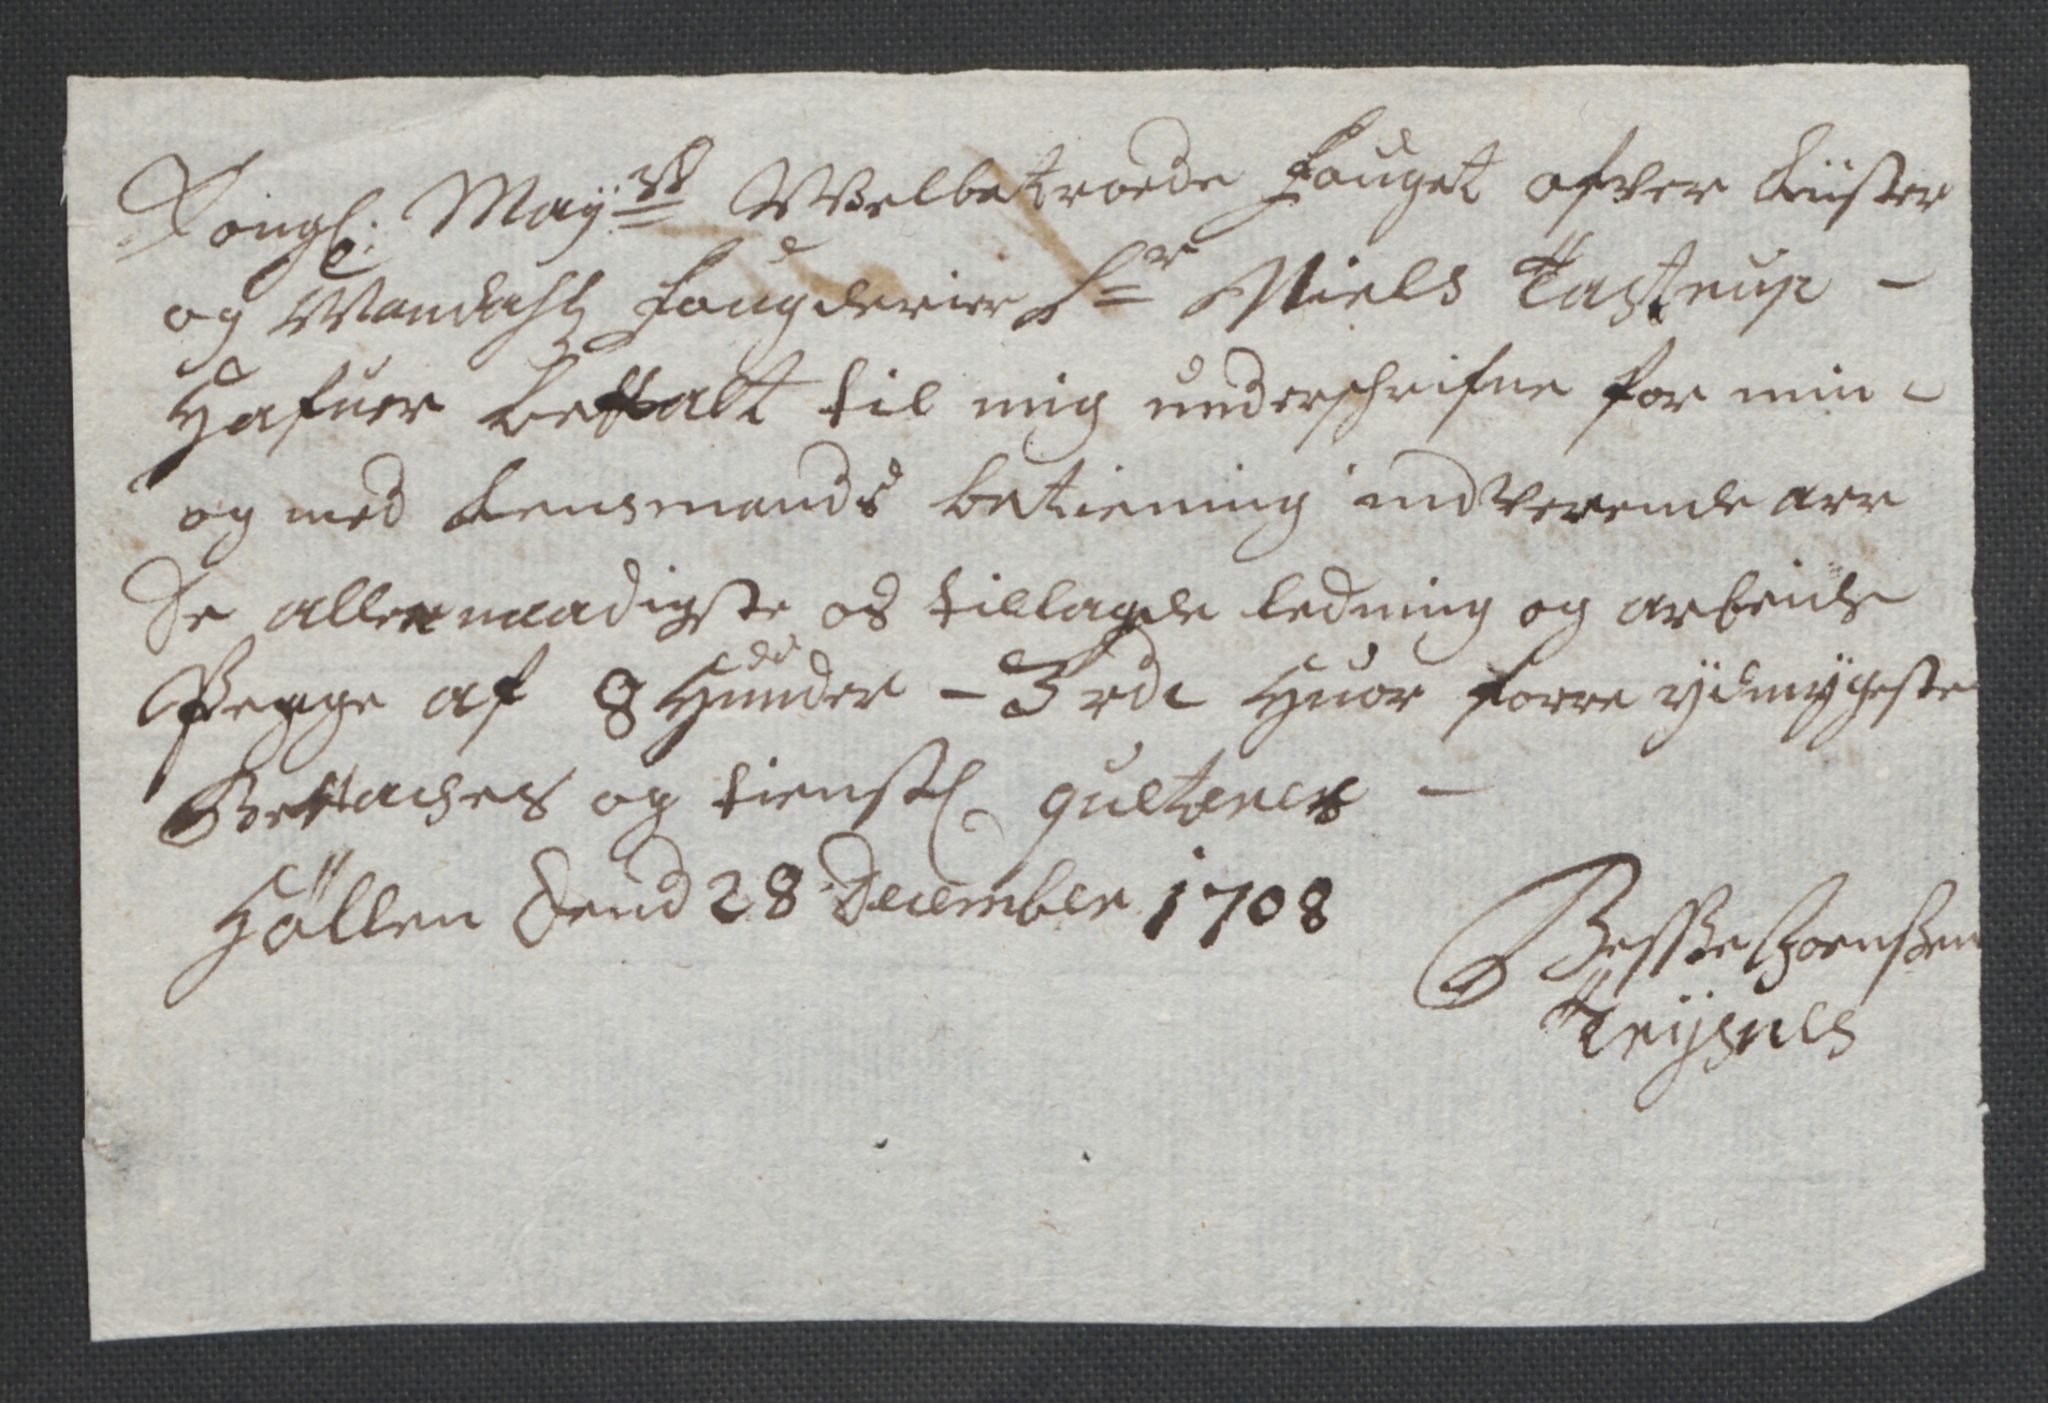 Kongl: May:tz Welbetroede Fouget ofver Lüster
og Mandahls Fougderier Sr Niels Tastrup -
Hafuer Bettalt til mig underschrifne for min -
og med Lensmands betiening indverende aar
De allernaadigste os tillagde ledning og arbeids
Penge af 8 Hunder - 3 rdl Huor forre ydmygeste
Bettackes og tienstl qulteres -
Höllen Dend 28 December 1708
Besse Joenssen
Teijgnes